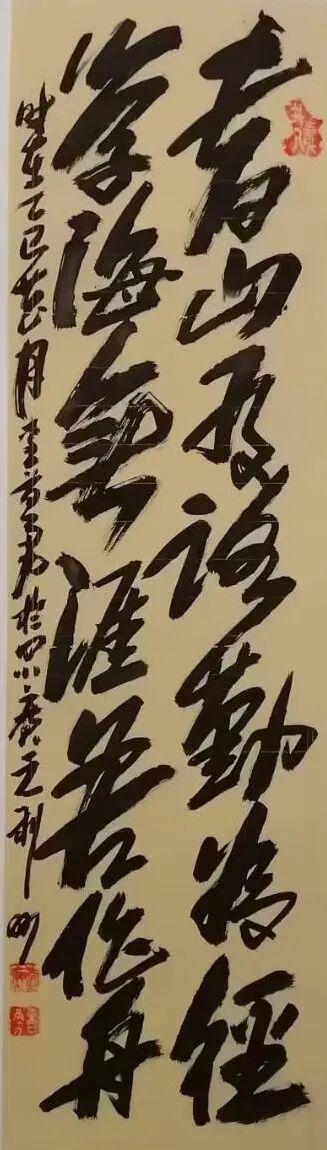 書山有路勤為徑
學海無涯苦作舟
時在乙巳月於四川廣元利州